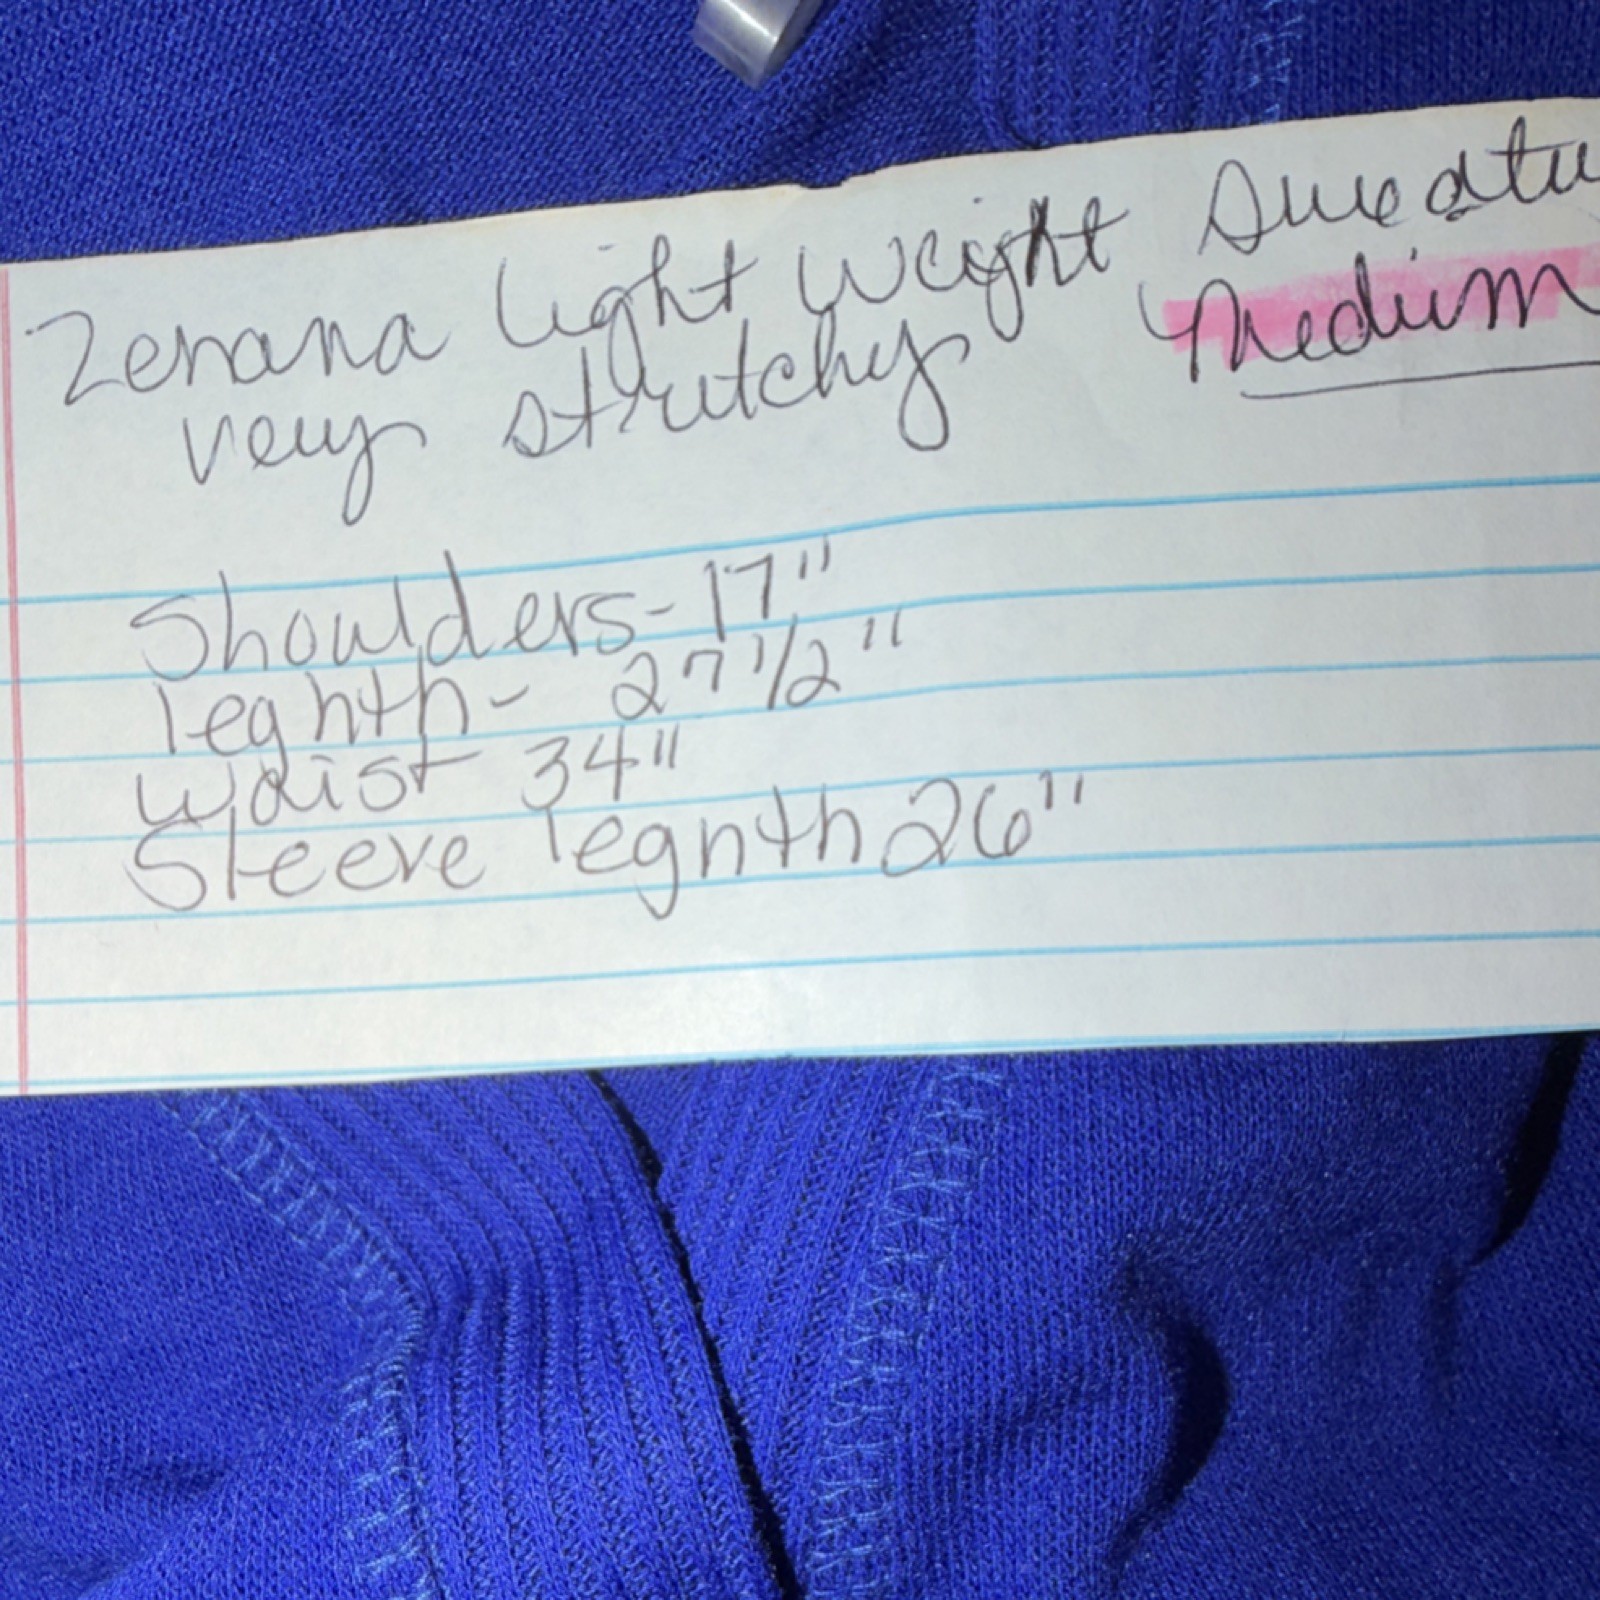 Zenana light weight Sweate
very stretchy Medium
Shoulders - 17"
leghth - 27 1/2"
waist 34"
Sleeve legnth 26"